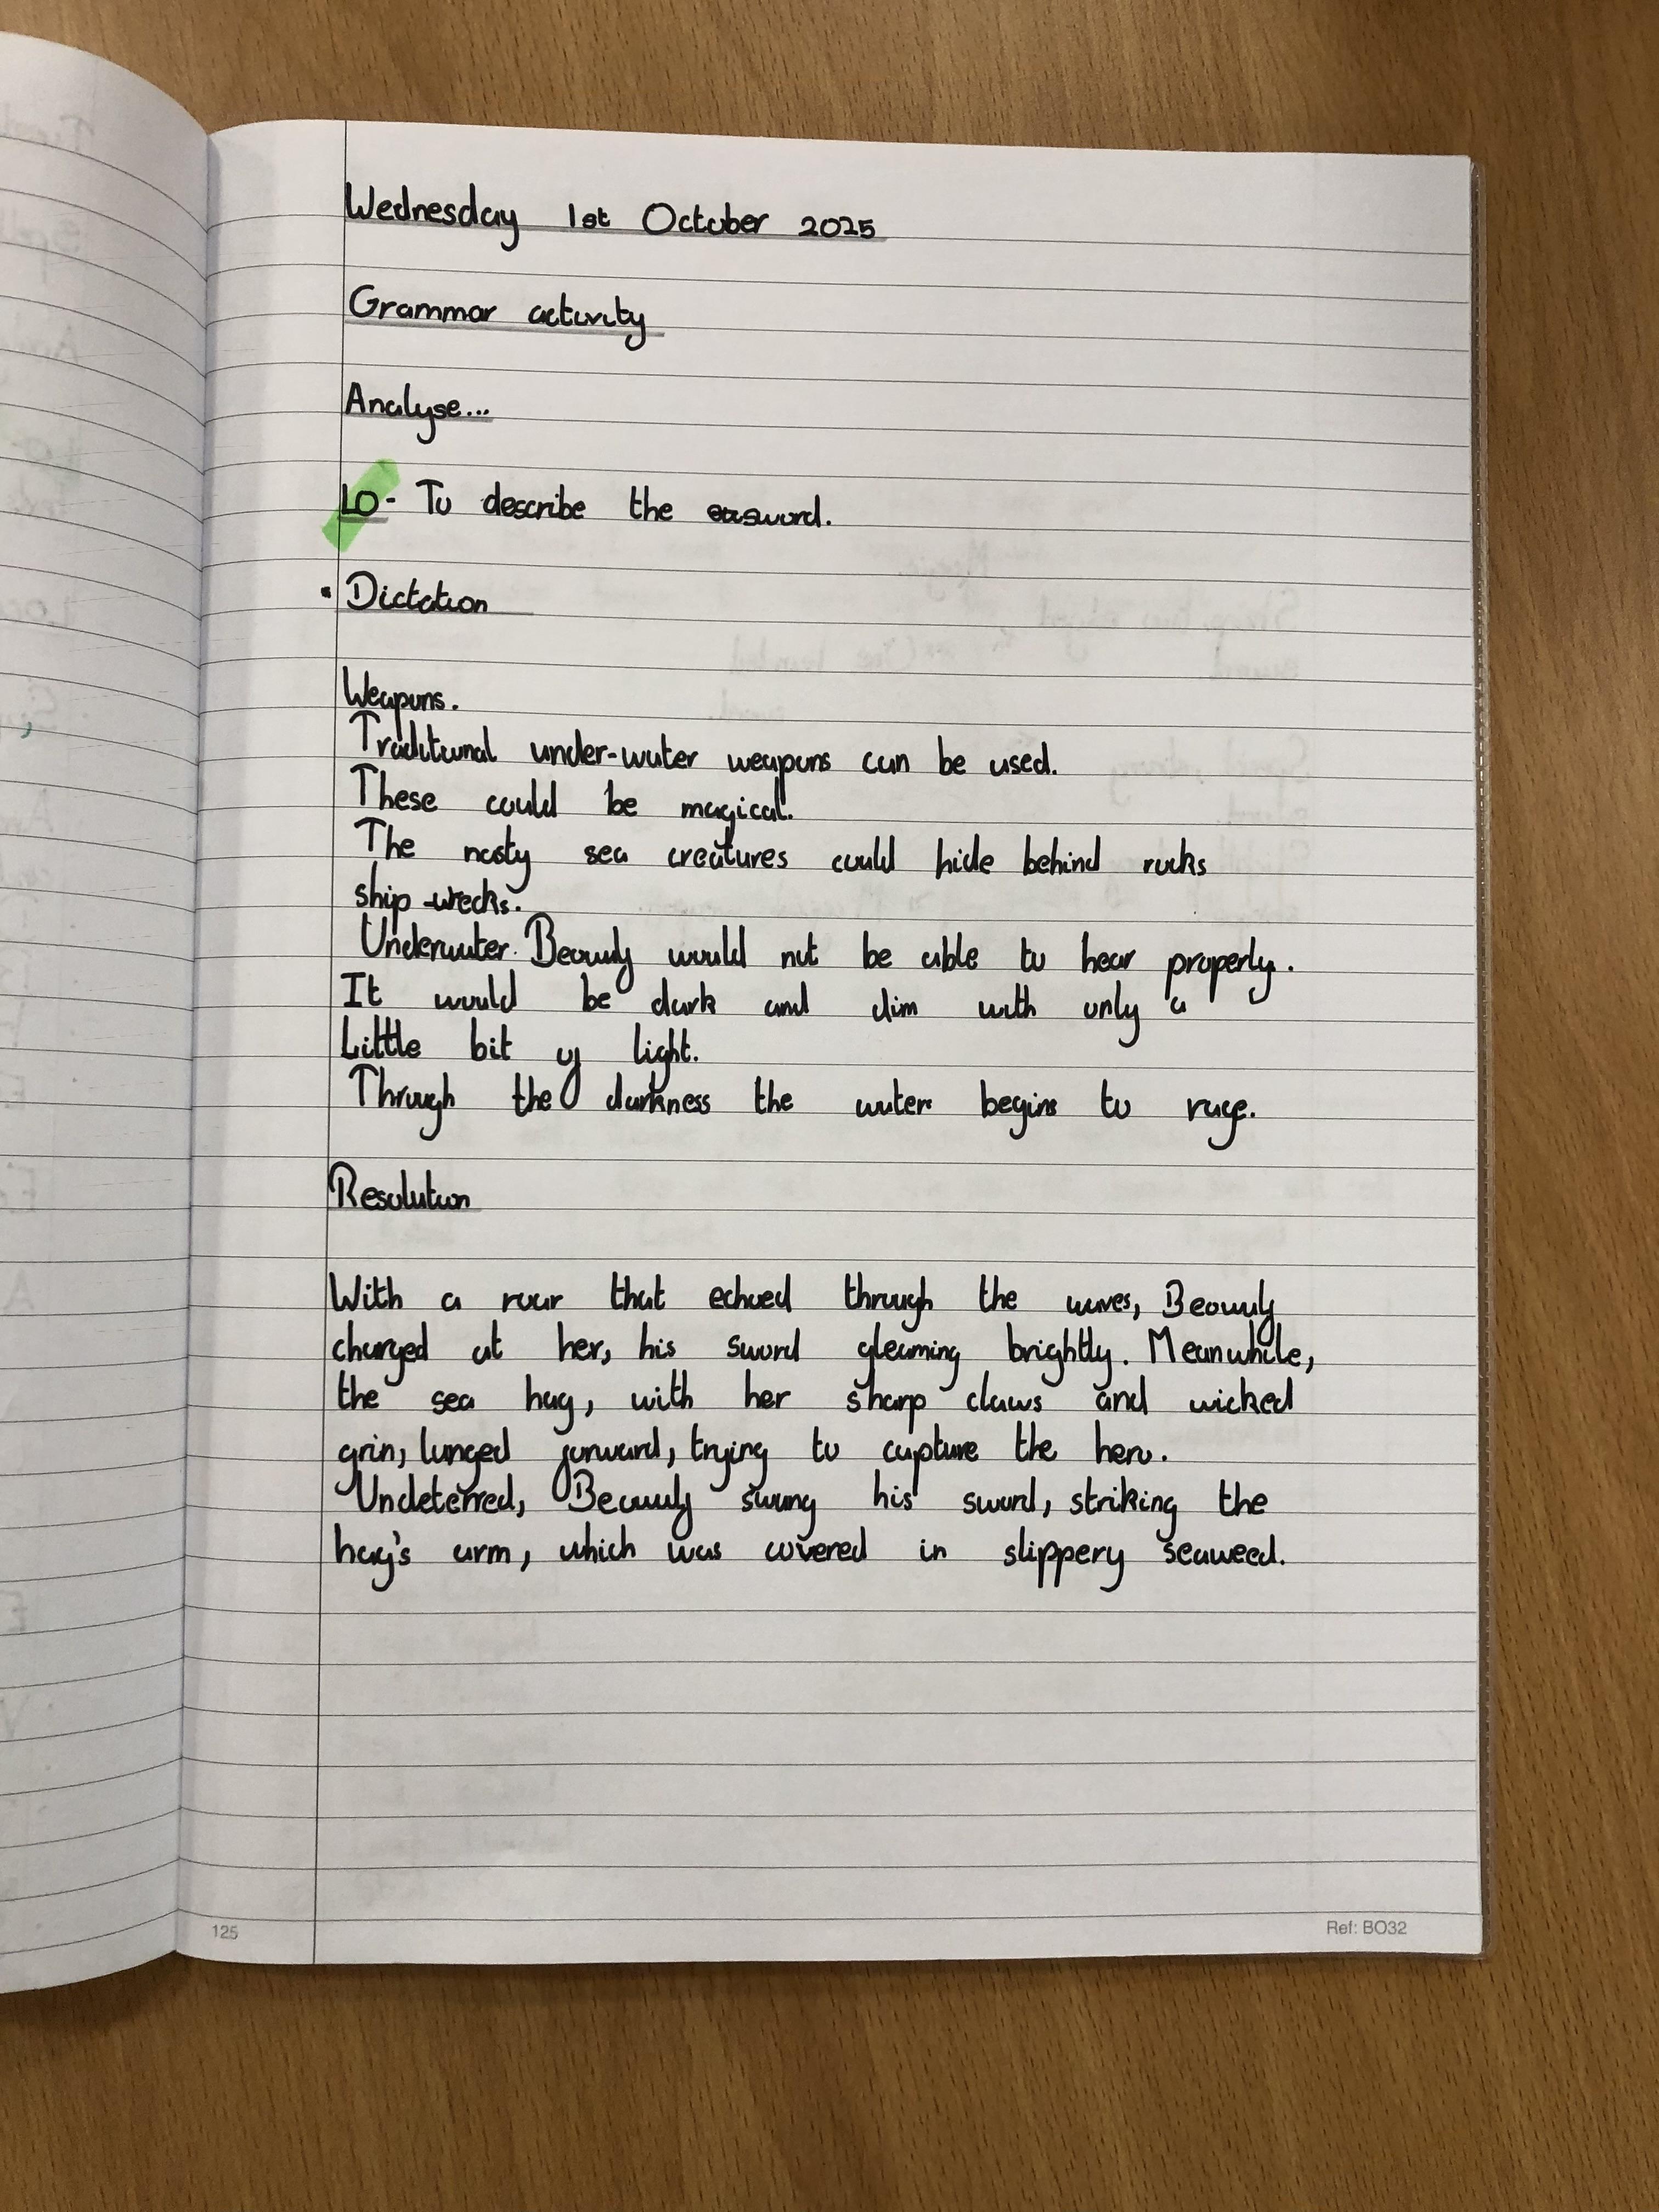 Wednesday 1st October 2025
Grammar activity
Analyse...
LO- To describe the sword.
• Dictation
Weapons.
Traditional under-water weapons can be used.
These could be magical.
The nasty sea creatures could hide behind rocks
ship-wrecks.
Underwater. Beowulf would not be able to hear properly.
It would be dark and dim with only a
Little bit of light.
Through the darkness the water begins to rage.
Resolution
With a roar that echoed through the waves, Beowulf
charged at her, his sword gleaming brightly. Meanwhile,
the sea hag, with her sharp claws and wicked
grin, lunged forward, trying to capture the hero.
Undeterred, Beowulf swung his sword, striking the
hag's arm, which was covered in slippery seaweed.
125
Ref: BO32